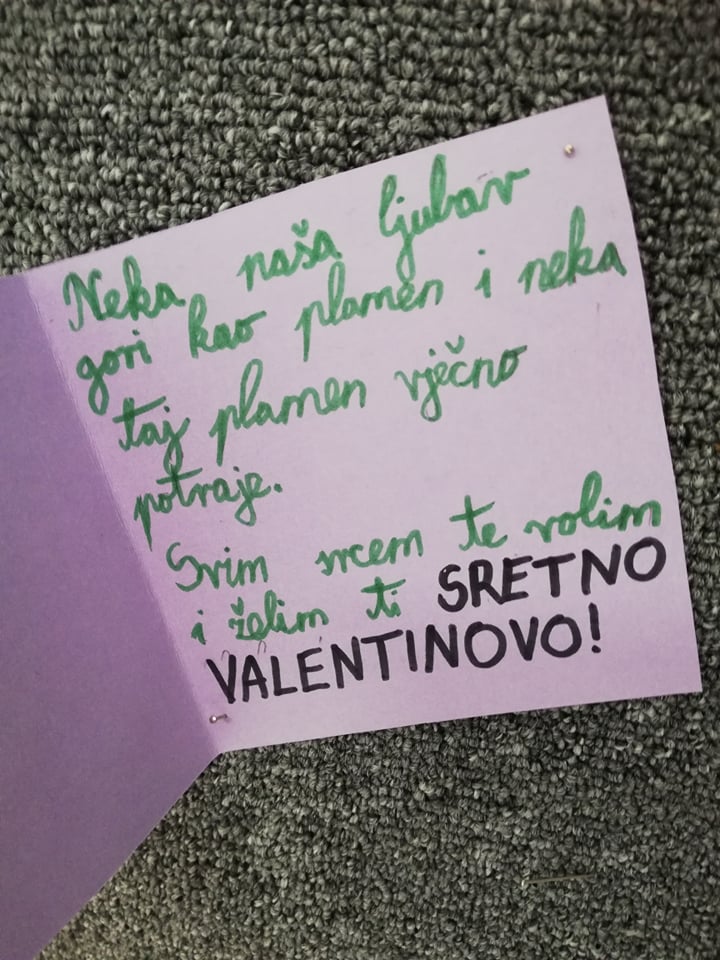 Neka naša ljubav
gori kao plamen i neka
taj plamen vječno
potraje.
Svim srcem te volim
i želim ti SRETNO
VALENTINOVO!